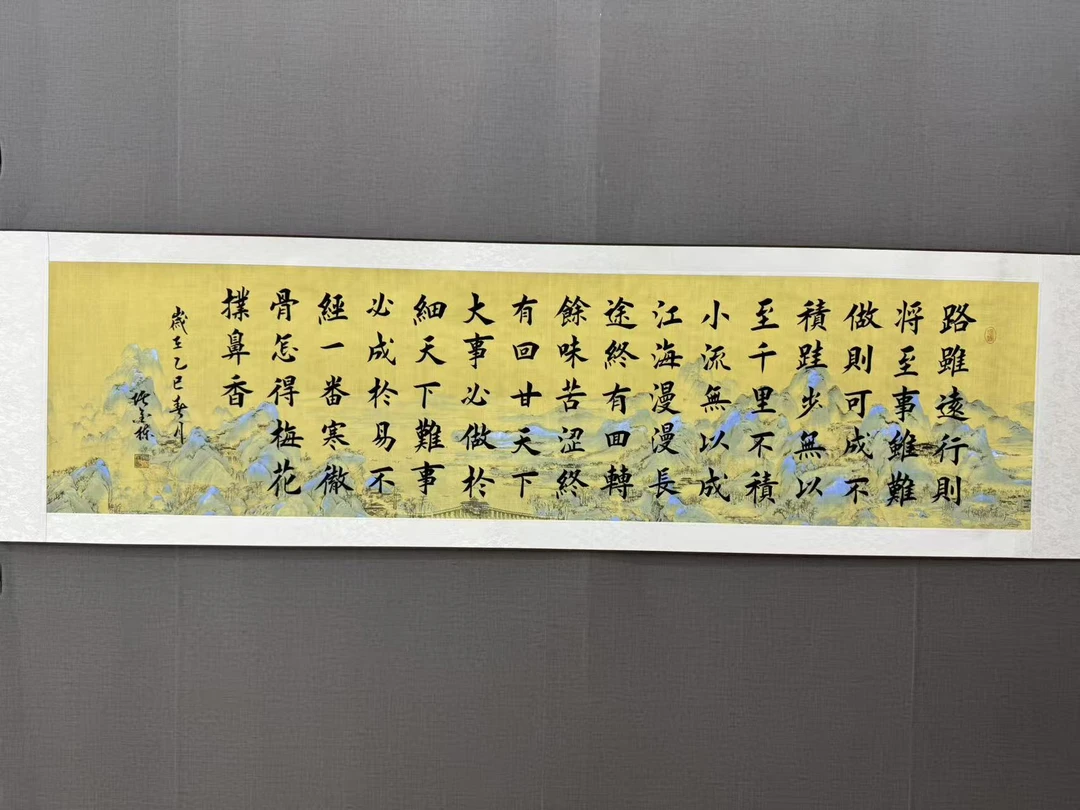 路雖遠行則
将至事雖難
做則可成不
積跬步無以
至千里不積
小流無以成
江海漫漫長
途終有回轉
餘味苦澀終
有回甘天下
大事必做於
細天下難事
必成於易不
經一番寒徹
骨怎得梅花
撲鼻香
歲在乙巳春月